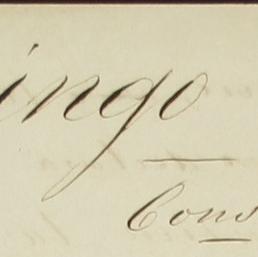 ingo
Cons